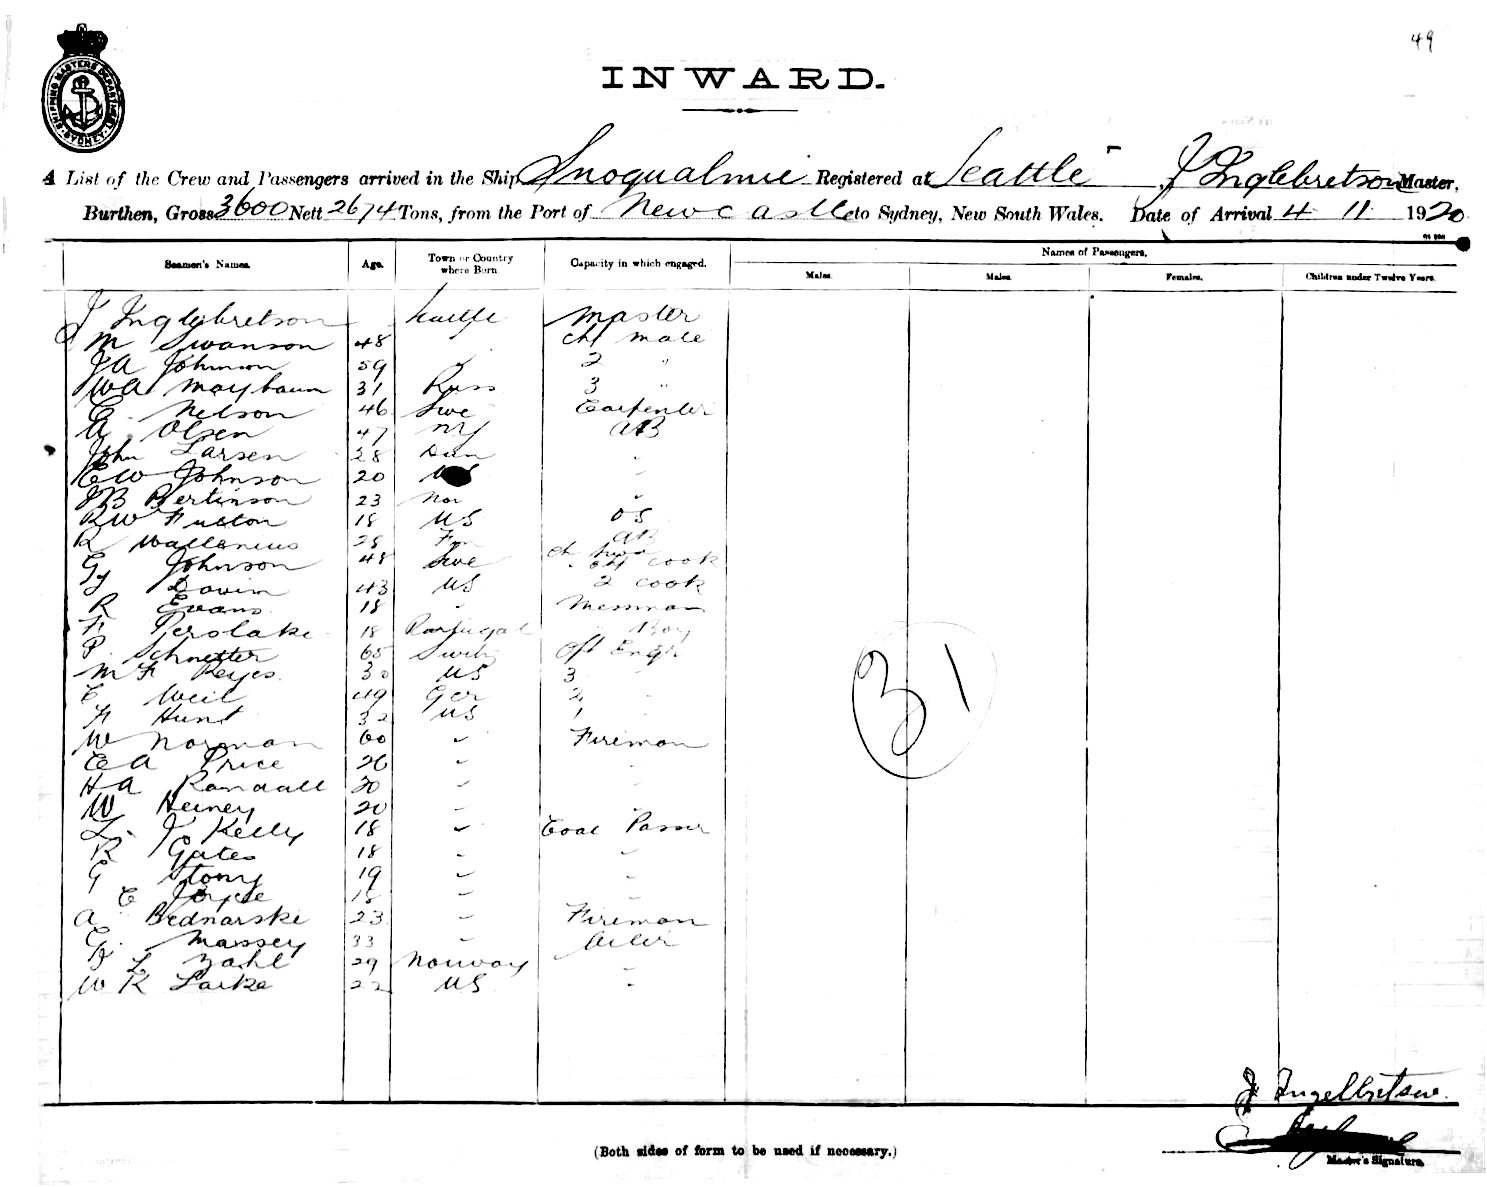 49
SHIPPING MASTERS DEPARTMENT SYDNEY
INWARD.
A List of the Crew and Passengers arrived in the Ship Snoqualmie Registered at Seattle J Inglebretson Master,
Burthen, Gross 3600 Nett 2674 Tons, from the Port of Newcastle to Sydney, New South Wales. Date of Arrival 4 11 1920
Seamen's Names. Age. Town or Country where Born. Capacity in which engaged. Names of Passengers.
Males. Males. Females. Children under Twelve Years.
J Inglebretson Seattle Master
M Swanson 48 " Ch Mate
JA Johnson 59 " 2 "
WA Maybaum 31 Russ 3 "
E Nelson 46 Swe Carpenter
A Olsen 47 Ny AB
John Larsen 28 Den "
EW Johnson 20 US "
JB Bertinson 23 Nor "
RW Fulton 18 US OS
R Wallenius 28 Fin AB
G Johnson 48 Swe Ch cook
J 43 US 2 cook
R Evans 18 " Messman
F Perolake 18 Portugal " Boy
P Schnetter 65 Switz Chf Engr
M F Reyes 30 US 3 "
E Weil 49 Ger 2 "
F Hunt 32 US 1 "
W Norman 60 " Fireman
EA Price 26 " "
HA Randall 20 " "
W Heiney 20 " "
L J Kelly 18 " Coal Passer
R Gates 18 " "
G Stony 19 " "
E Joyce 18 " "
A Bednarske 23 " Fireman
G Massey 33 " Oiler
D L Zahl 29 Norway "
W R Larke 22 US "
31
J Ingelbretson
(Both sides of form to be used if necessary.)
Master's Signature.